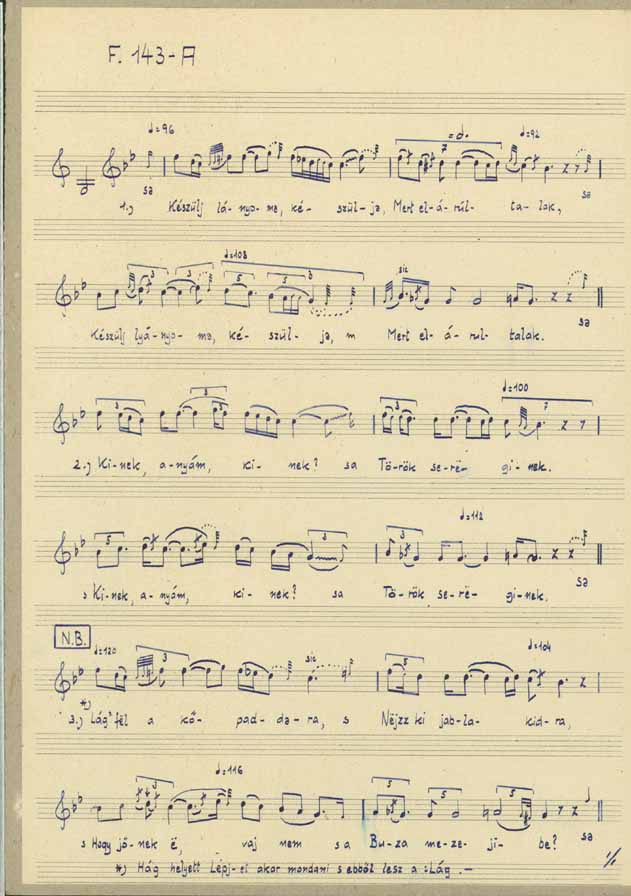 F. 143-A
♩=96 =♩. ♩=92
sa
1.) Készülj lá-nyo-ma, ké-szül-ja, Mert el-á-rúl-ta-lak, sa
♩=108
3 3 5 5 3 sic
Készülj lyá-nyo-ma, ké-szül-ja, m Mert el-á-rul-talak. sa
♩=100
3 3 3 7
2.) Ki-nek, a-nyám, ki-nek? sa Tö-rök se-rë-gi-nek.
♩=112
5 3 3
s Ki-nek, a-nyám, ki-nek? sa Tö-rök se-rë-gi-nek. sa
N.B.
♩=120 5 sic 5 ♩=104
*)
3.) Lág' fël a kő-pad-da-ra, s Nëjzz ki jab-la-kid-ra,
♩=116
3 5 5 5
s Hogy jő-nek ë, vaj nem sa Bu-za me-ze-ji-be? sa
*) Hág helyett Lépj-et akar mondani s ebből lesz a :Lág. —
1/1